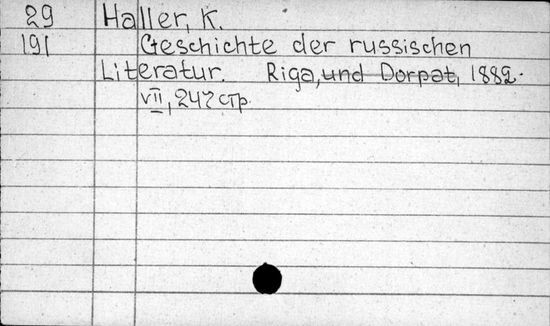 29 Haller, K.
191 Geschichte der russischen
Literatur. Riga, und Dorpat, 1882.
VII, 247 стр.